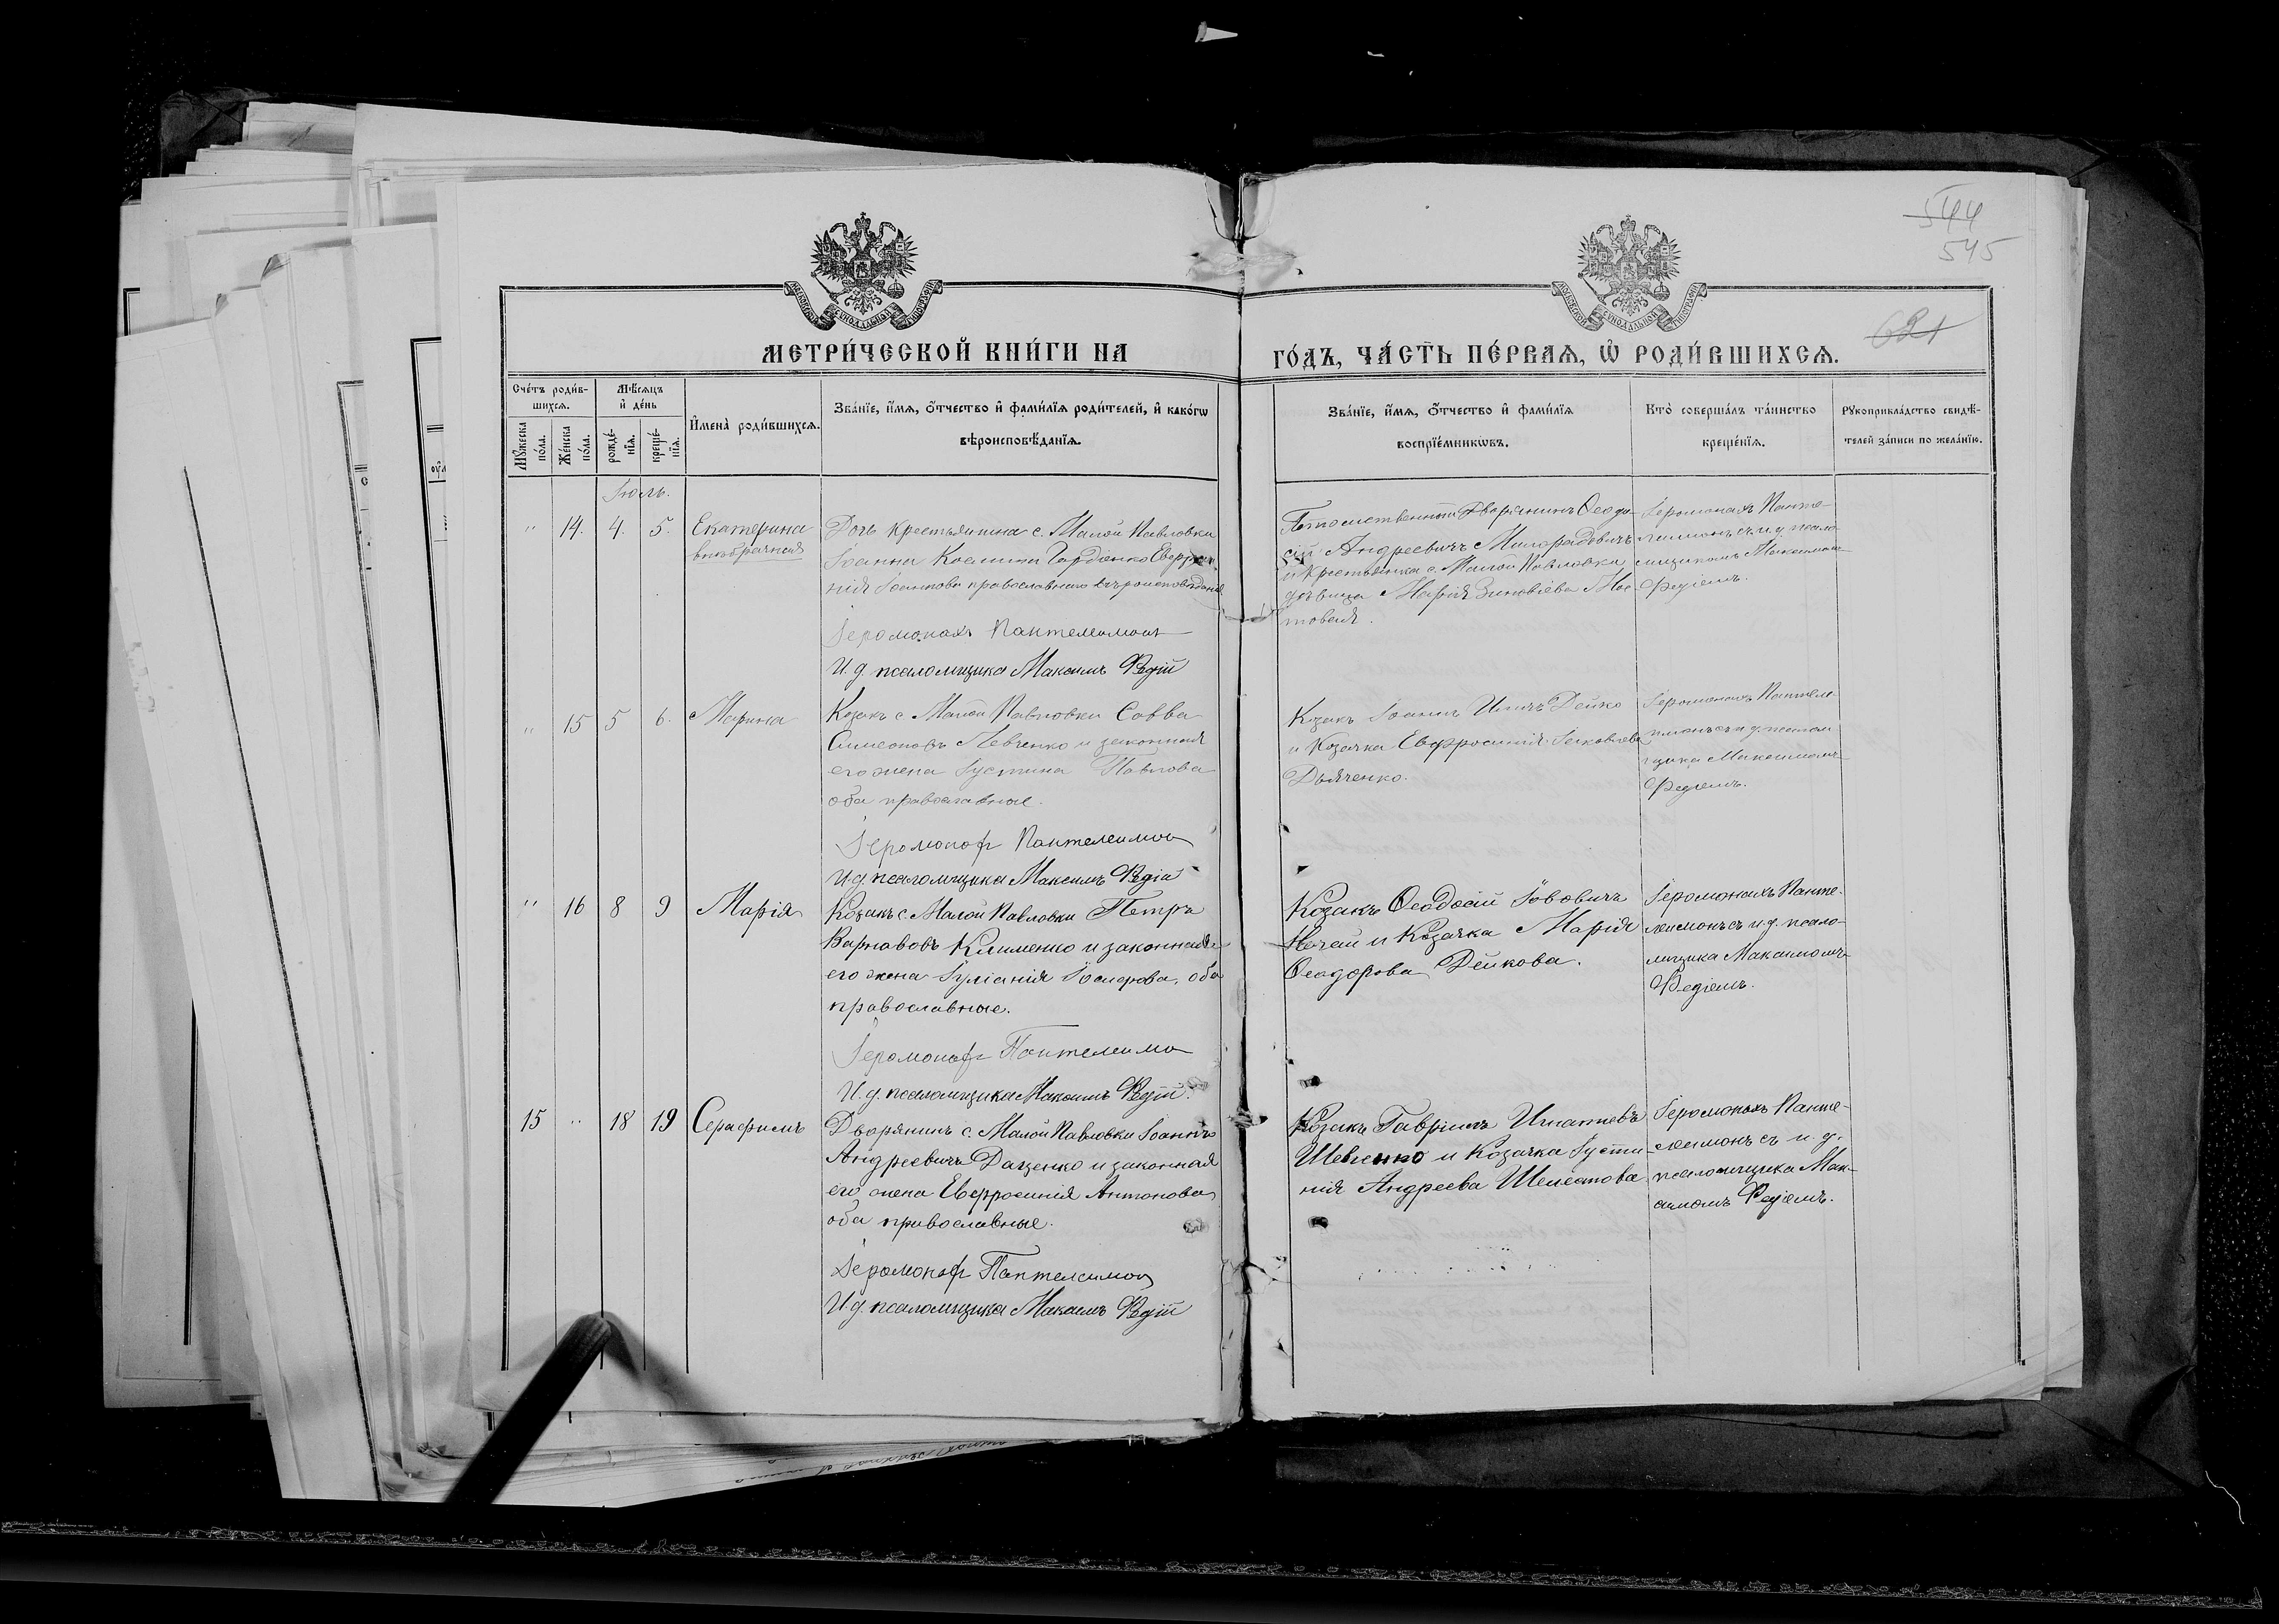 544
545
621
МЕТРИ́ЧЕСКОЙ КНИ́ГИ НА
ГО́ДЪ, ЧА́СТЬ ПЕ́РВАЯ, Ѡ҆ РОДИ́ВШИХСЯ.
Сче́тъ роди́в-
шихся.
Мѣ́сяцъ
и҆ де́нь
И҆мена̀ роди́вшихся.
Зва́нїе, и҆́мя, о҆́тчество и҆ фами́лїя роди́телей, и҆ како́гѡ
вѣроисповѣ́данїя.
Мꙋ́жеска
по́ла.
Же́нска
по́ла.
рожде́-
нїя.
креще́-
нїя.
Зва́нїе, и҆́мя, о҆́тчество и҆ фами́лїя
воспрїе́мникѡвъ.
Кто̀ соверша́лъ та́инство
креще́нїя.
Рꙋкоприкла́дство свидѣ́-
телей за́писи по жела́нїю.
Іюль.
" 14. 4. 5. Екатерина
внѣбрачная
Дочь крестьянина с. Малой Павловки
Іоанна Гордѣнко Евфро-
нія Іоаннова православнаго вѣроисповѣданія
Іеромонахъ Пантелеимонъ
И. д. псаломщика Максимъ Федій
Дворянинъ Ѳеодо-
сій Андреевичъ Милорадовичъ
и крестьянка с. Малой Павловки
дѣвица Марія Зиновіева Мос-
товая.
Іеромонахъ Панте-
леимонъ съ и. д. псало-
мщикомъ Максимомъ
Федіемъ.
" 15 5 6. Марина
Козакъ с. Малой Павловки Савва
Симеоновъ Левченко и законная
его жена Іустина Павлова
оба православные.
Іеромонахъ Пантелеимонъ
И. д. псаломщика Максимъ Федій
Козакъ Іоаннъ Дейко
и Козачка Евфросинія Іаковлева
Дьяченко.
Іеромонахъ Пантеле-
имонъ съ и д. псалом-
щика Максимомъ
Федіемъ.
" 16 8 9 Марія
Козакъ с. Малой Павловки Петръ
Варнавовъ Клименко и законная
его жена Іуліанія Іосифова, оба
православные.
Іеромонахъ Пантелеимонъ
И. д. псаломщика Максимъ Федій.
Козакъ Ѳеодосій Іововичъ
Нечай и Козачка Марія
Ѳеодорова Дейкова.
Іеромонахъ Панте-
леимонъ съ и д. псало-
мщика Максимомъ
Федіемъ.
15 " 18 19 Серафимъ
Дворянинъ с. Малой Павловки Іоаннъ
Андреевичъ Даценко и законная
его жена Евфросинія Антонова
оба православные.
Іеромонахъ Пантелеимонъ
И. д. псаломщика Максимъ Федій
Козакъ Гавріилъ Игнатіевъ
Шевченко и Козачка Іусти-
нія Андреева Шелестова
Іеромонахъ Панте-
леимонъ съ и. д.
псаломщика Мак-
симомъ Федіемъ.